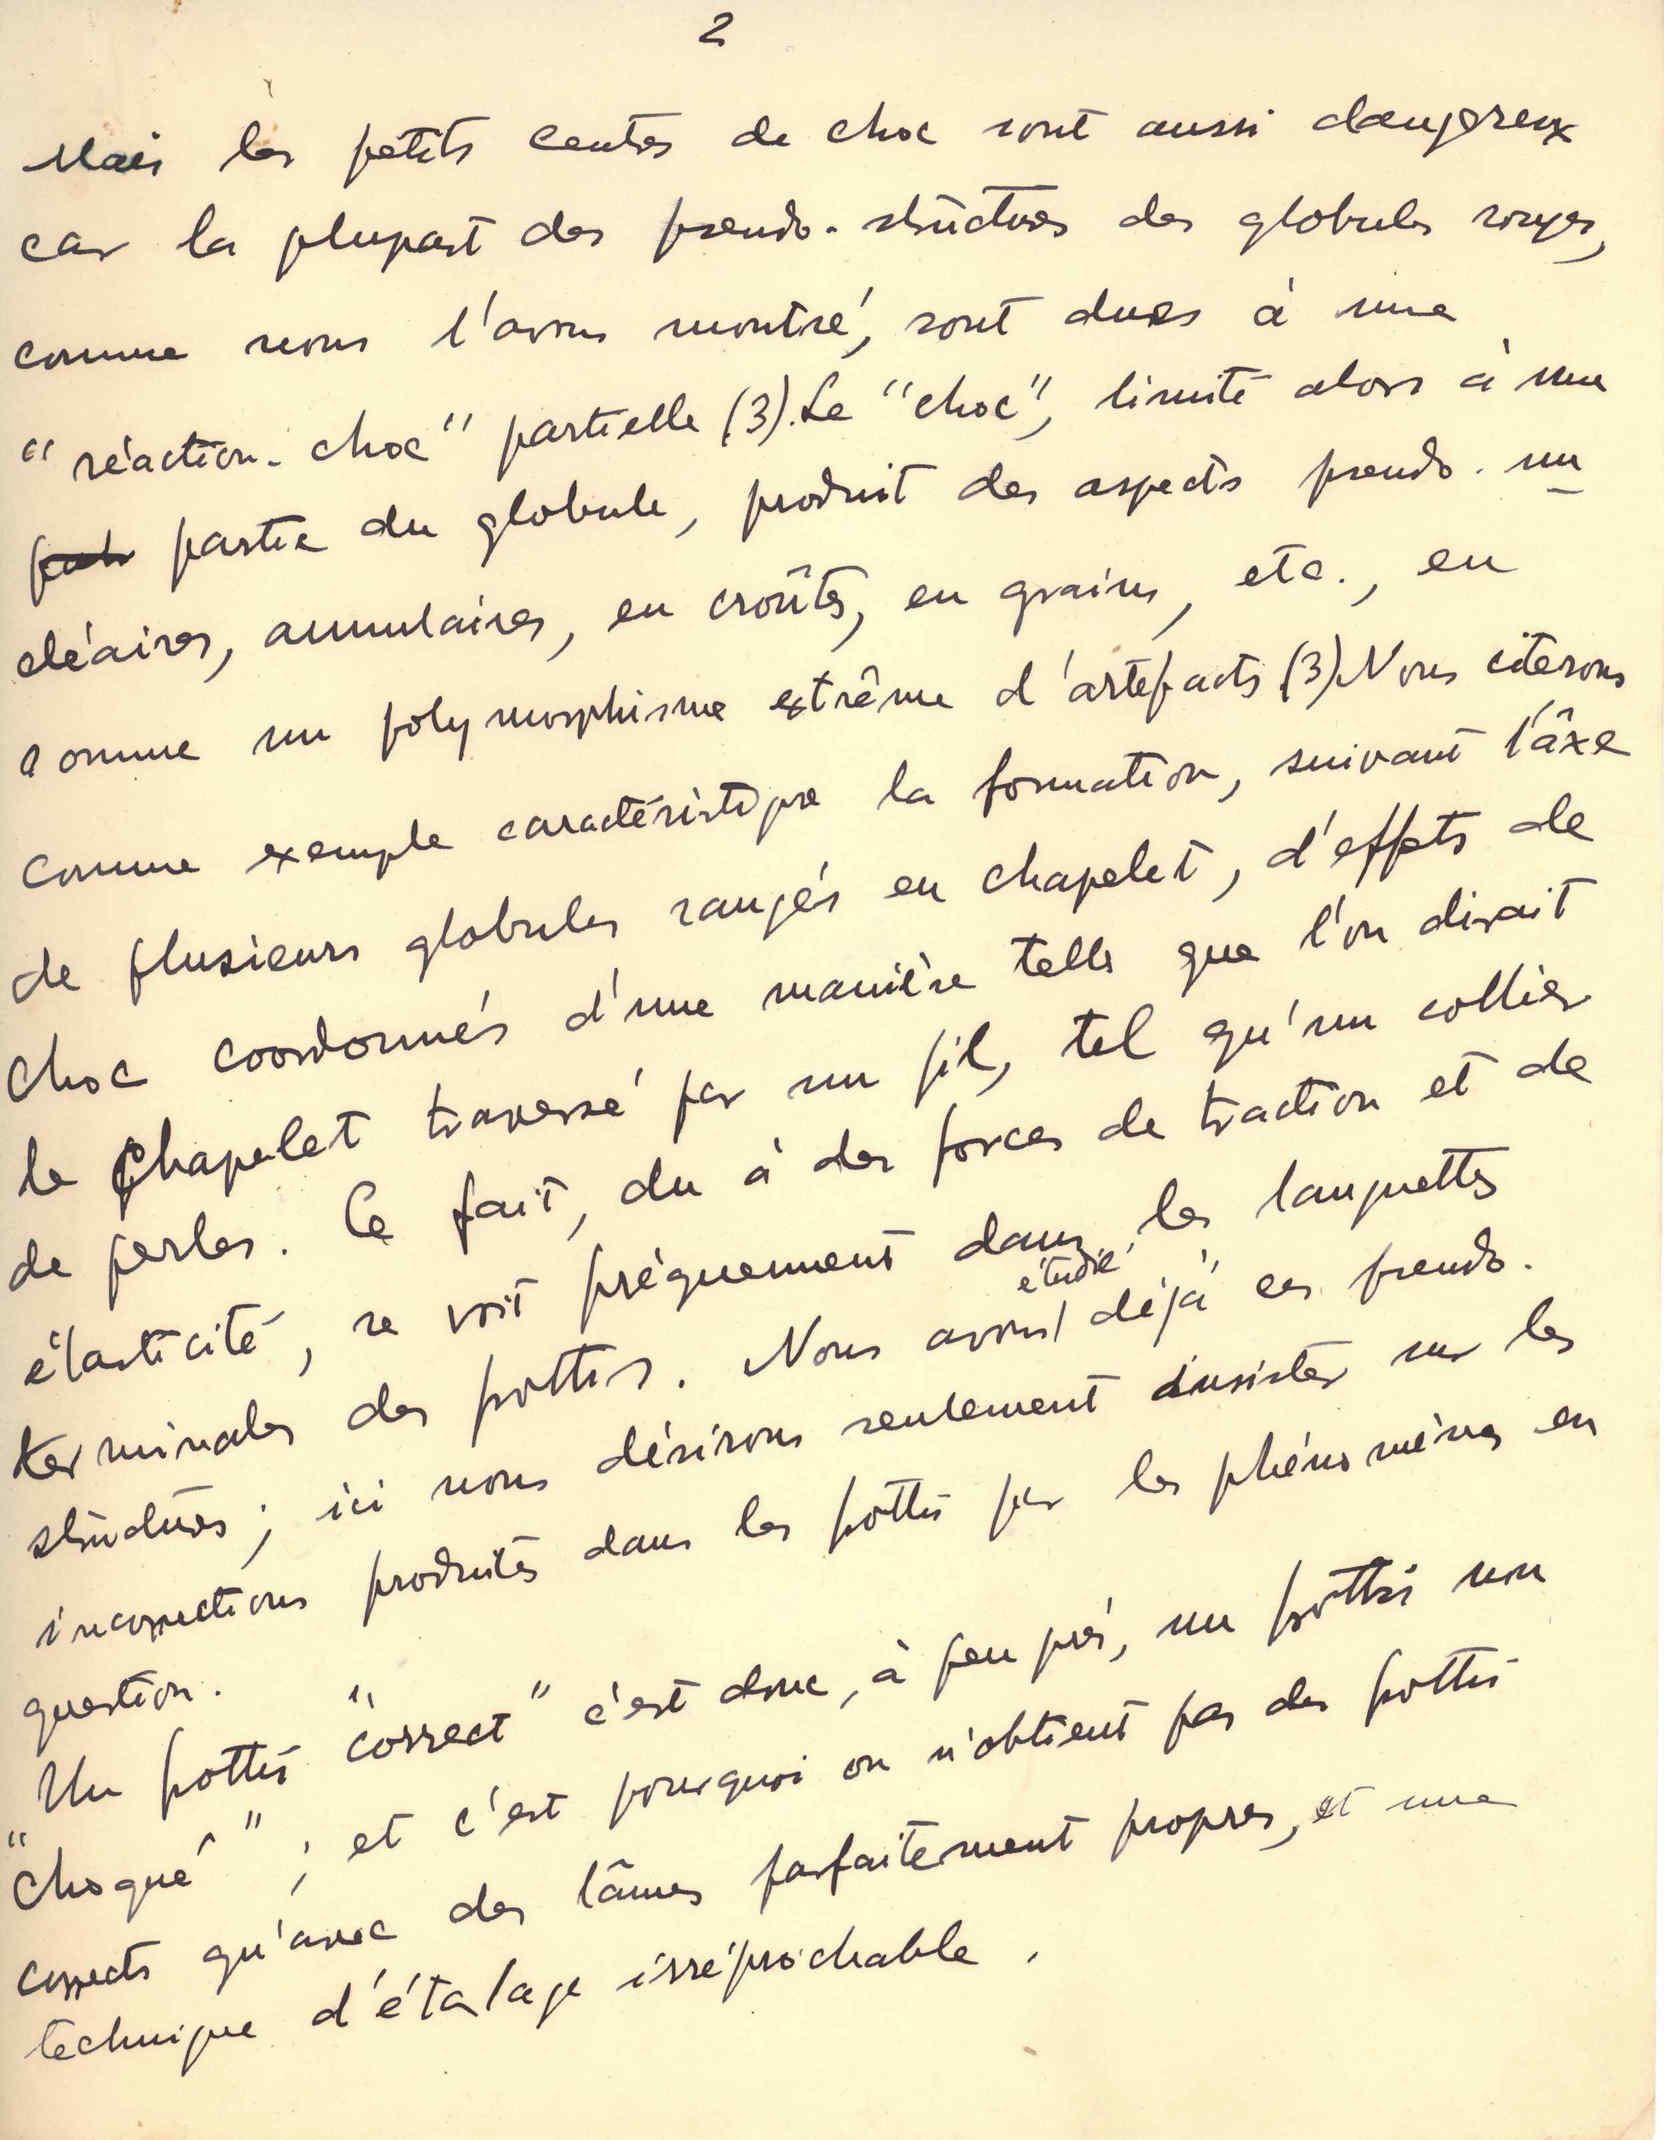 2
Mais les petits centres de choc sont aussi dangereux
car la plupart des pseudo-strüctures des globules rouges,
comme nous l'avons montré, sont dues à une
"réaction-choc" partielle (3). Le "choc", limité alors à une
partie du globule, produit des aspects pseudo-nu
cléaires, annulaires, en croûtes, en grains, etc., en
somme un polymorphisme extrême d'artefacts (3) Nous citerons
comme exemple caractéristique la formation, suivant l'âxe
de plusieurs globules rangés en chapelet, d'effets de
choc coordonnés d'une manière telle que l'on dirait
le chapelet traversé par un fil, tel qu'un collier
de perles. Ce fait, du à des forces de traction et de
élasticité, se voit fréquemment dans les languettes
terminales des frottis. Nous avons étudié déjà ces pseudo-
strüctures; ici nous désirons seulement insister sur les
incorrections produites dans les frottis par les phénomènes en
question.
Un frottis "correct" c'est donc, à peu près, un frottis non
"choqué"; et c'est pourquoi on n'obtient pas des frottis
corrects qu'avec des lâmes parfaitement propres, et une
technique d'étalage irréprochable.